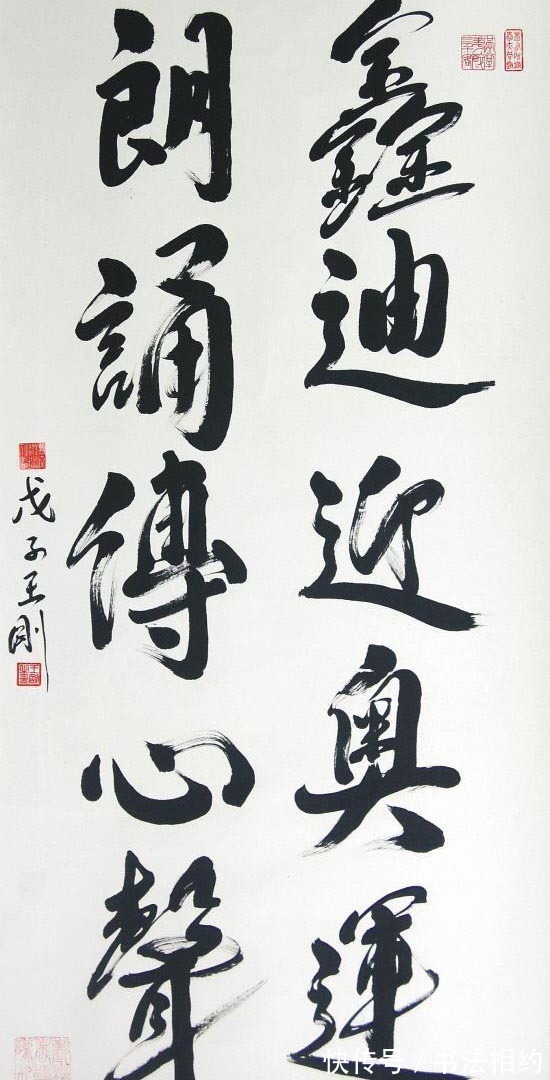 鑫迪迎奥運
朗誦傳心聲
戊子王剛
快传号/书法相约